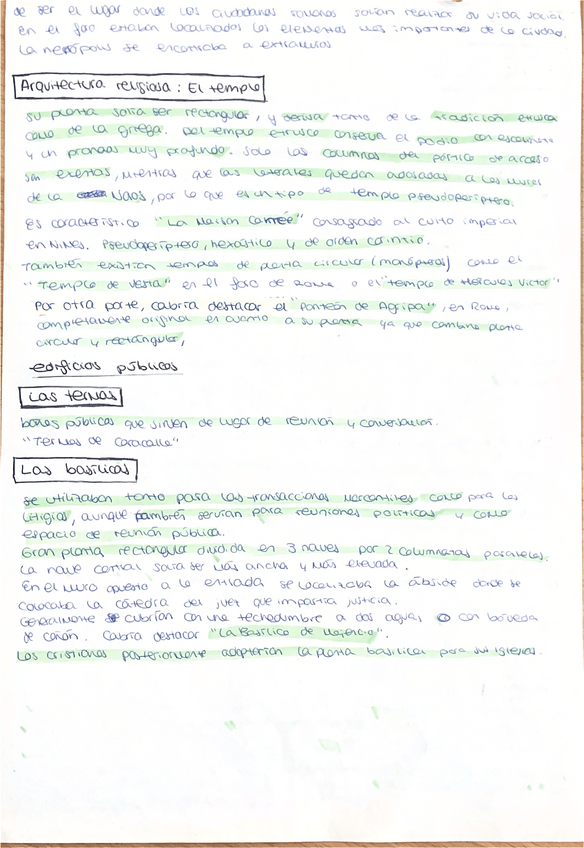 de ser el lugar donde los ciudadanos romanos solían realizar su vida social
En el foro estaban localizados los elementos más importantes de la ciudad.
La necrópolis se encontraba a extramuros
Arquitectura religiosa: El templo
su planta solía ser rectangular, y deriva tanto de la tradición etrusca
como de la griega. Del templo etrusco conserva el podio con escalinata
y un pronaos muy profundo. Solo las columnas del pórtico de acceso
son exentas, mientras que las laterales quedan adosadas a los muros
de la Naos, por lo que es un tipo de templo pseudoperíptero.
Es característico "La Maison Carrée" consagrado al culto imperial
en Nimes. Pseudoperíptero, hexástilo y de orden corintio.
También existían templos de planta circular (monópteros) como el
"Templo de Vesta" en el foro de Roma o el "templo de Hércules Victor"
Por otra parte, cabría destacar el "Panteón de Agripa", en Roma,
completamente original en cuanto a su planta ya que combina planta
circular y rectangular,
edificios públicos
Las termas
baños públicos que sirven de lugar de reunión y conversación.
"Termas de Caracalla"
Las basílicas
se utilizaban tanto para las transacciones mercantiles como para los
litigios, aunque también servían para reuniones políticas y como
espacio de reunión pública.
Gran planta rectangular dividida en 3 naves por 2 columnatas paralelas.
La nave central solía ser más ancha y más elevada.
En el muro opuesto a la entrada se localizaba la ábside donde se
colocaba la cátedra del juez que impartía justicia.
Generalmente se cubrían con una techedumbre a dos aguas, o con bóveda
de cañón. Cabría destacar "La Basílica de Majencio".
Los cristianos posteriormente adoptarían la planta basilical para sus iglesias.